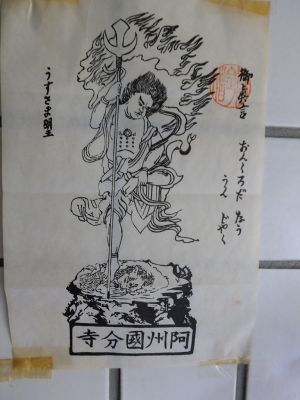 御真言
おんくろだ なう
うん じやく
うすさま明王
阿州國分寺